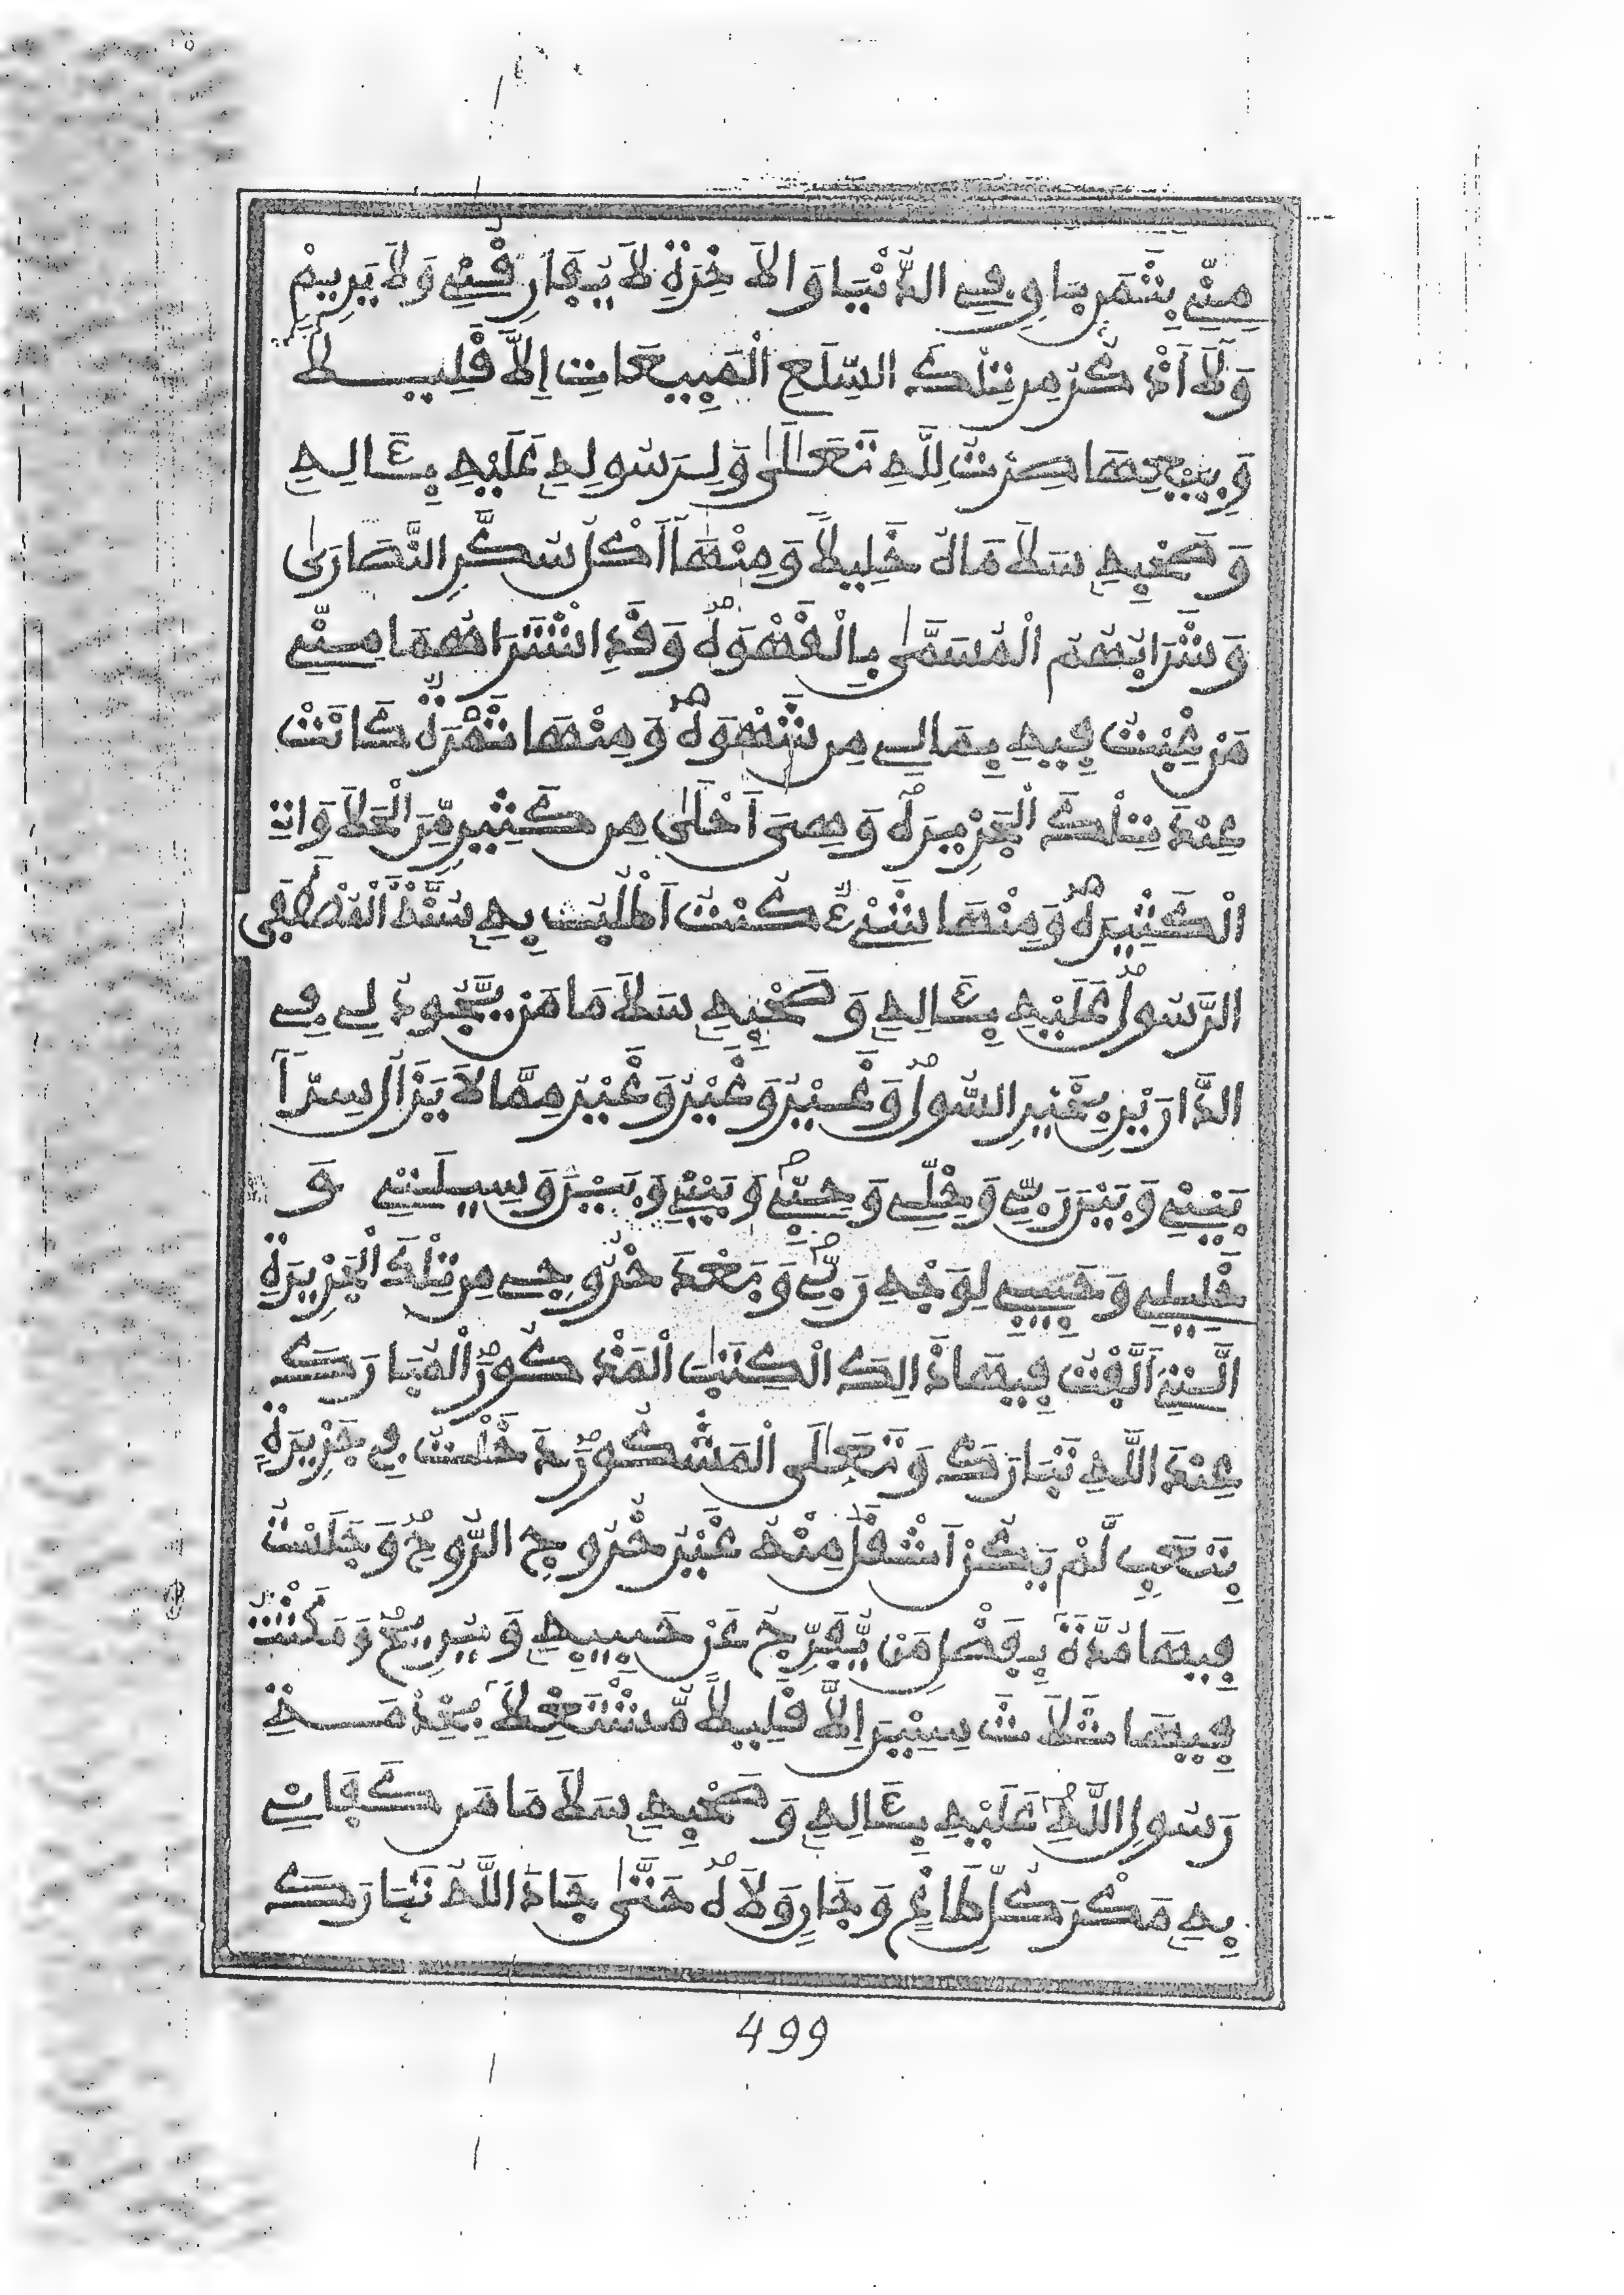 مِنِّے بِثَمَرٍ يَّاوِے فِے الدُّنْيَا وَالاَخِرَةِ لاَ يُفَارِقُنِے وَلاَ يَرِيمْ
وَلَآ أَذْكُرُ مِن تِلْكَ السِّلَعِ الْمَبِيعَاتِ إِلاَّ قَلِيلاً
وَبِبَيْعِهَا صِرْتُ لِلَّهِ تَعَالَىٰ وَلِرَسُولِهِ عَلَيْهِ بِئَالِهِ
وَصَحْبِهِ سَلاَمَاهُ خَلِيلاً وَمِنْهَآ أَكْلُ سُكَّرِ النَّصَارَىٰ
وَشَرَابُهُمُ الْمُسَمَّىٰ بِالْقَهْوَةِ وَقَدِ اشْتَرَاهُمَا مِنِّے
مَن غِبْتُ فِيهِ بِمَا لِے مِن شَهْوَةٍ وَمِنْهَا ثَمَرَةٌ كَانَتْ
عِندَ تِلْكَ الْجَزِيرَةِ وَهِىَ أَحْلَىٰ مِن كَثِيرٍ مِّنَ الْحَلاَوَاتِ
الْكَثِيرَةِ وَمِنْهَا شَىْءٌ كُنتُ أَطْلُبُ بِهِ سُنَّةَ الْمُصْطَفَى
الرَّسُولِ عَلَيْهِ بِئَالِهِ وَصَحْبِهِ سَلاَمَا مَن يَّجُودُ لِے فِے
الدَّارَيْنِ بِخَيْرِ السُّولِ وَغَيْرُ وَغَيْرُ وَغَيْرُ مِمَّا لاَ يَزَالُ سِرّاً
بَيْنِے وَبَيْنَ رَبِّے وَخِلِّے وَحِبِّے وَبَيْنِے وَبَيْنَ وَسِيلَتِے وَ
خَلِيلِے وَحَبِيبِے لِوَجْهِ رَبِّے وَبَعْدَ خُرُوجِے مِن تِلْكَ الْجَزِيرَةِ
الَّتِے أَلَّفْتُ فِيهَا ذَالِكَ الْكِتَٰبَ الْمَذْكُورَ الْمُبَارَكَ
عِندَ اللَّهِ تَبَارَكَ وَتَعَالَى الْمَشْكُورَ دَخَلْتُ فِے جَزِيرَةٍ
بِتَعَبٍ لَّمْ يَكُنْ أَشْقَّ مِنْهُ غَيْرُ خُرُوجِ الرُّوحِ وَجَلَسْتُ
فِيهَا مُدَّةً بِفَضْلِ مَن يُّفَرِّجُ عَنْ حَبِيبِهِ وَيُرِيحُ وَمَكَثْتُ
فِيهَا ثَلاَثَ سِنِينَ إِلاَّ قَلِيلاً مُّشْتَغِلاً بِخِدْمَةِ
رَسُولِ اللَّهِ عَلَيْهِ بِئَالِهِ وَصَحْبِهِ سَلاَمَا مَن كَفَانِے
بِهِ مَكْرَ كُلِّ طَاغٍ وَجَارٍ وَلاَهٍ حَتَّىٰ جَادَ اللَّهُ تَبَارَكَ
499